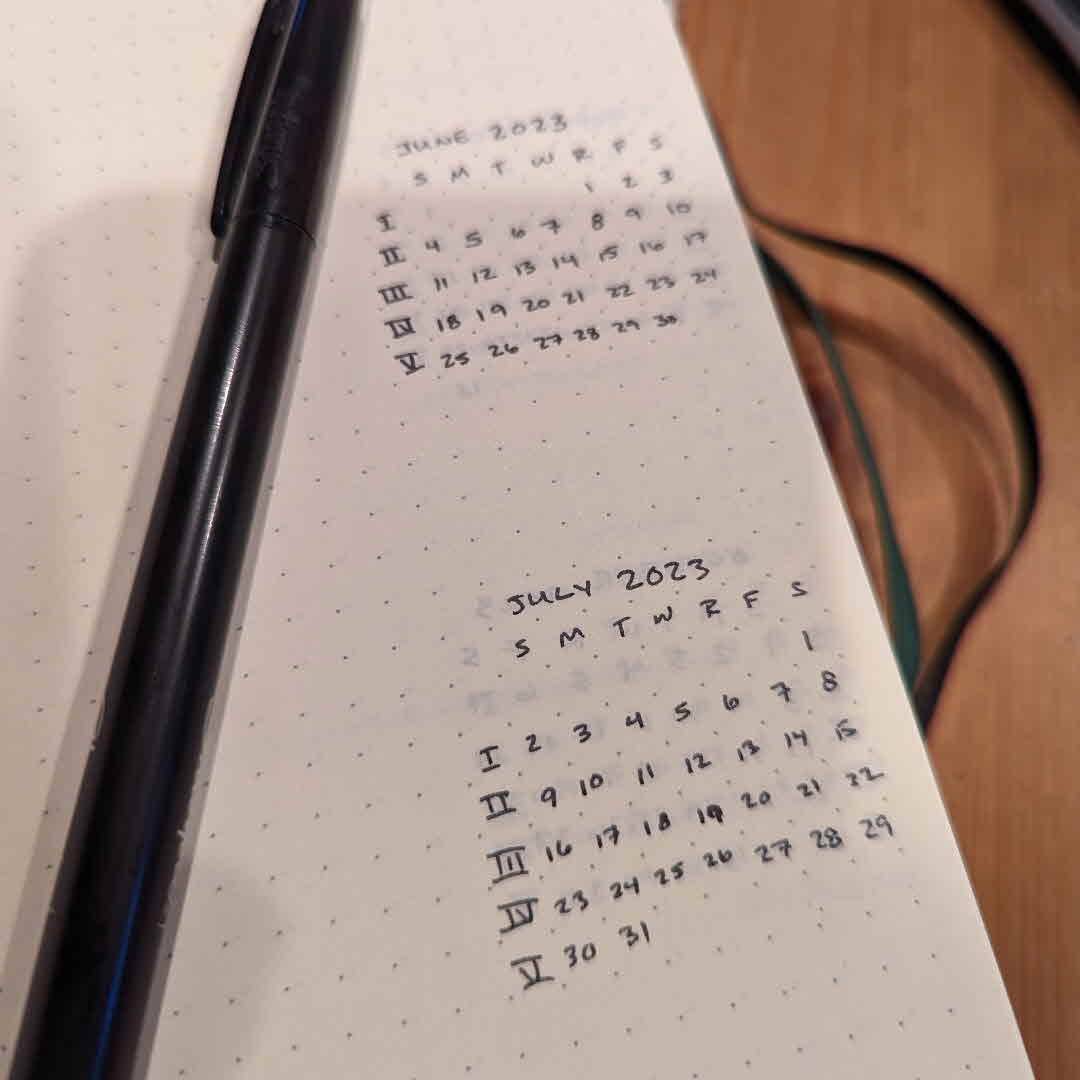 JUNE 2023
S M T W R F S
I 1 2 3
II 4 5 6 7 8 9 10
III 11 12 13 14 15 16 17
IV 18 19 20 21 22 23 24
V 25 26 27 28 29 30
JULY 2023
S M T W R F S
1
I 2 3 4 5 6 7 8
II 9 10 11 12 13 14 15
III 16 17 18 19 20 21 22
IV 23 24 25 26 27 28 29
V 30 31